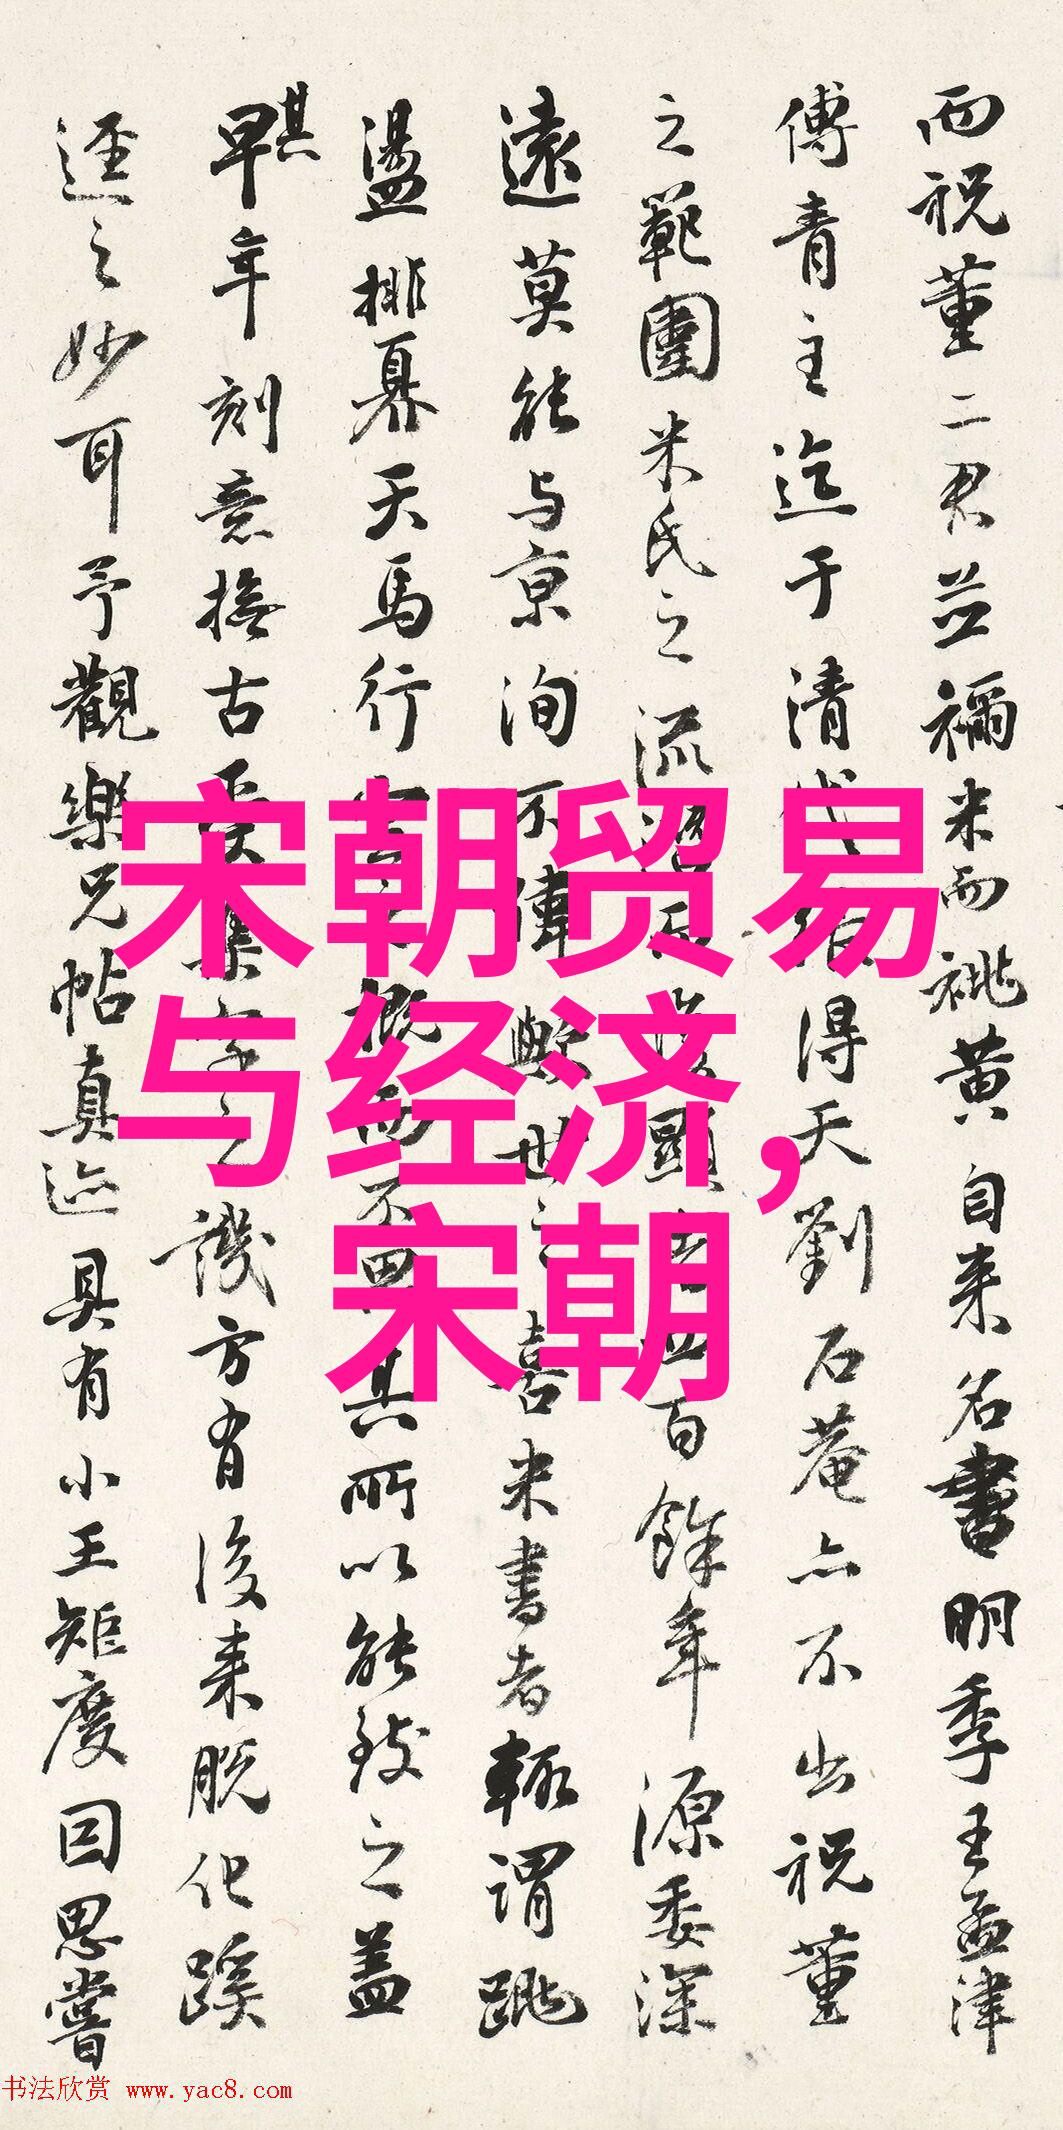 而祝董二君並禰米而祧黄自来名書明季王孟津
傅青主迄于清得天劉石菴亦不出祝董
之範圍米氏之流百餘年源委深
遠莫能与京洵不偉世喜米書者輒謂跳
盪排奡天馬行概而不其所以能致之蓋
其
早年刻意撫古集字之譏方有後来脱化蹊
逕之妙耳予觀樂兄帖真迹具有小王矩度因思嘗
宋朝贸易
与经济,
宋朝
书法欣赏 www.yac8.com